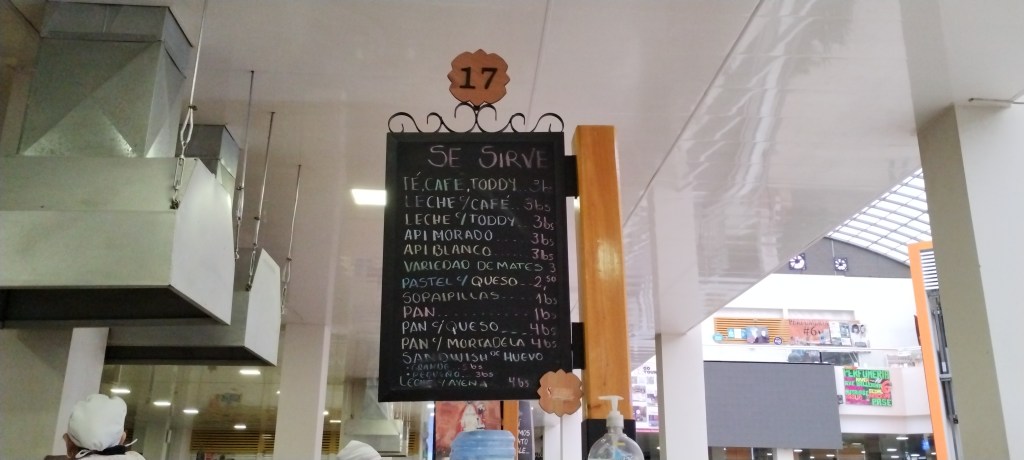 17
SE SIRVE
TÉ, CAFE, TODDY 3b
LECHE C/CAFÉ. 3bs
LECHE C/TODDY 3bs
API MORADO ... 3bs
API BLANCO ... 3bs
VARIEDAD DE MATES 3
PASTEL C/QUESO.. 2,50
SOPAIPILLAS... 1bs
PAN... 1bs
PAN C/QUESO ___ 4bs
PAN C/ MORTADELA 4bs
SANDWISH DE HUEVO
• GRANDE 5bs
• PEQUEÑO. 3bs
LECHE C/AVENA 4bs
PERFUMERIA